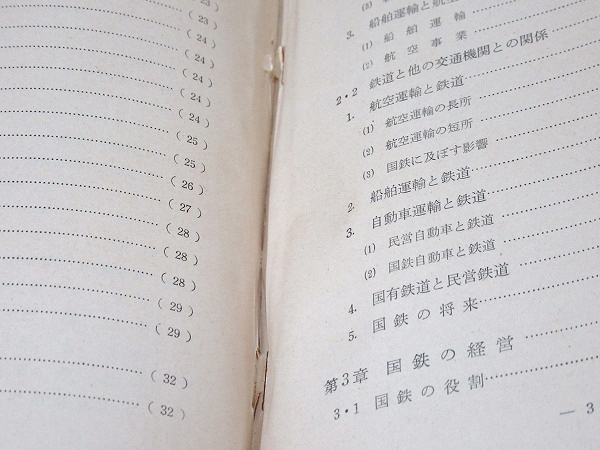 ( 23 )
( 23 )
( 24 )
( 24 )
( 24 )
( 24 )
( 24 )
( 25 )
( 25 )
( 26 )
( 27 )
( 28 )
( 28 )
( 28 )
( 29 )
( 29 )
( 32 )
( 32 )
3. 船舶運輸と航空
(1) 船舶運輸
(2) 航空事業
2・2 鉄道と他の交通機関との関係
1. 航空運輸と鉄道
(1) 航空運輸の長所
(2) 航空運輸の短所
(3) 国鉄に及ぼす影響
2. 船舶運輸と鉄道
3. 自動車運輸と鉄道
(1) 民営自動車と鉄道
(2) 国鉄自動車と鉄道
4. 国有鉄道と民営鉄道
5. 国鉄の将来
第3章 国鉄の経営
3・1 国鉄の役割
— 3